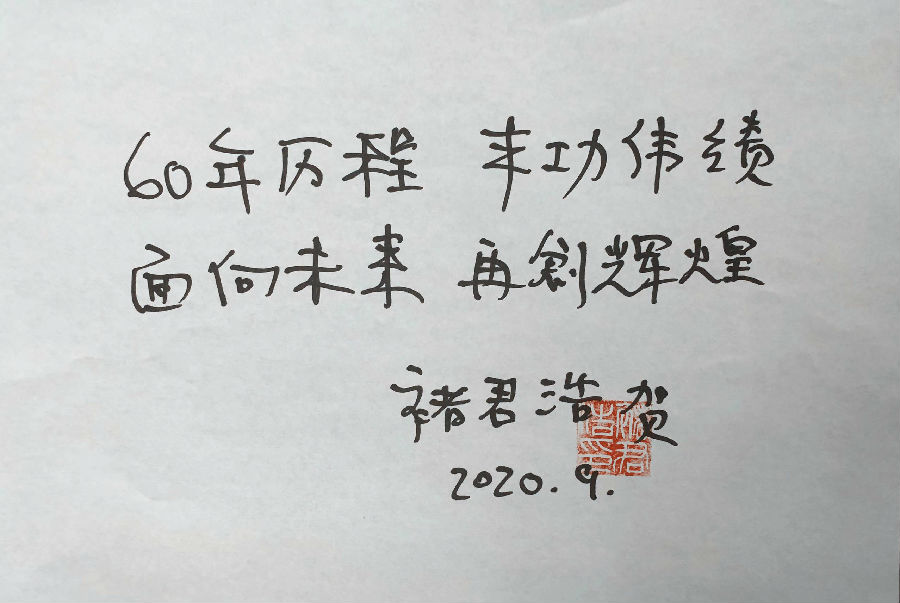 60年历程 丰功伟绩
面向未来 再创辉煌
褚君浩 贺
2020.9.
褚君浩印